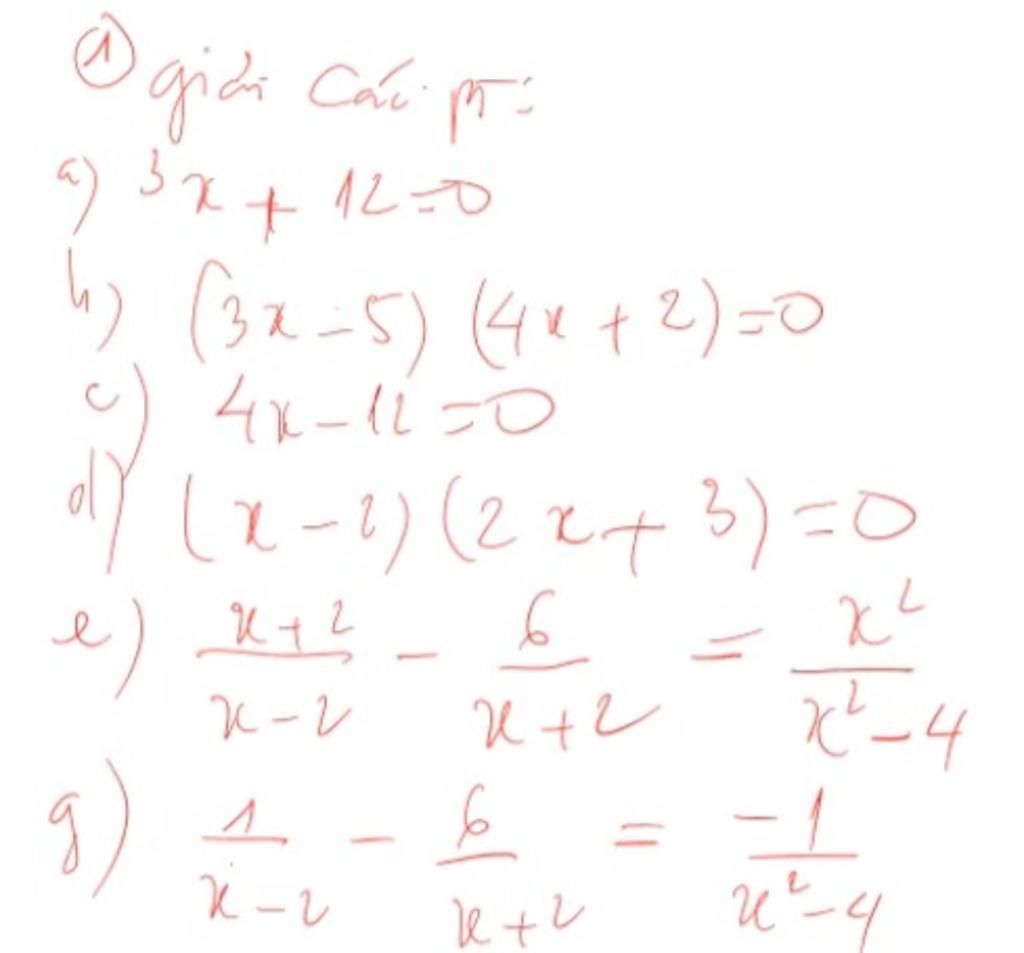 ① giải các pt:
a) 3x + 12 = 0
b) (3x - 5) (4x + 2) = 0
c) 4x - 12 = 0
d) (x - 2) (2x + 3) = 0
e) \frac{x+2}{x-2} - \frac{6}{x+2} = \frac{x^2}{x^2-4}
g) \frac{1}{x-2} - \frac{6}{x+2} = \frac{-1}{x^2-4}